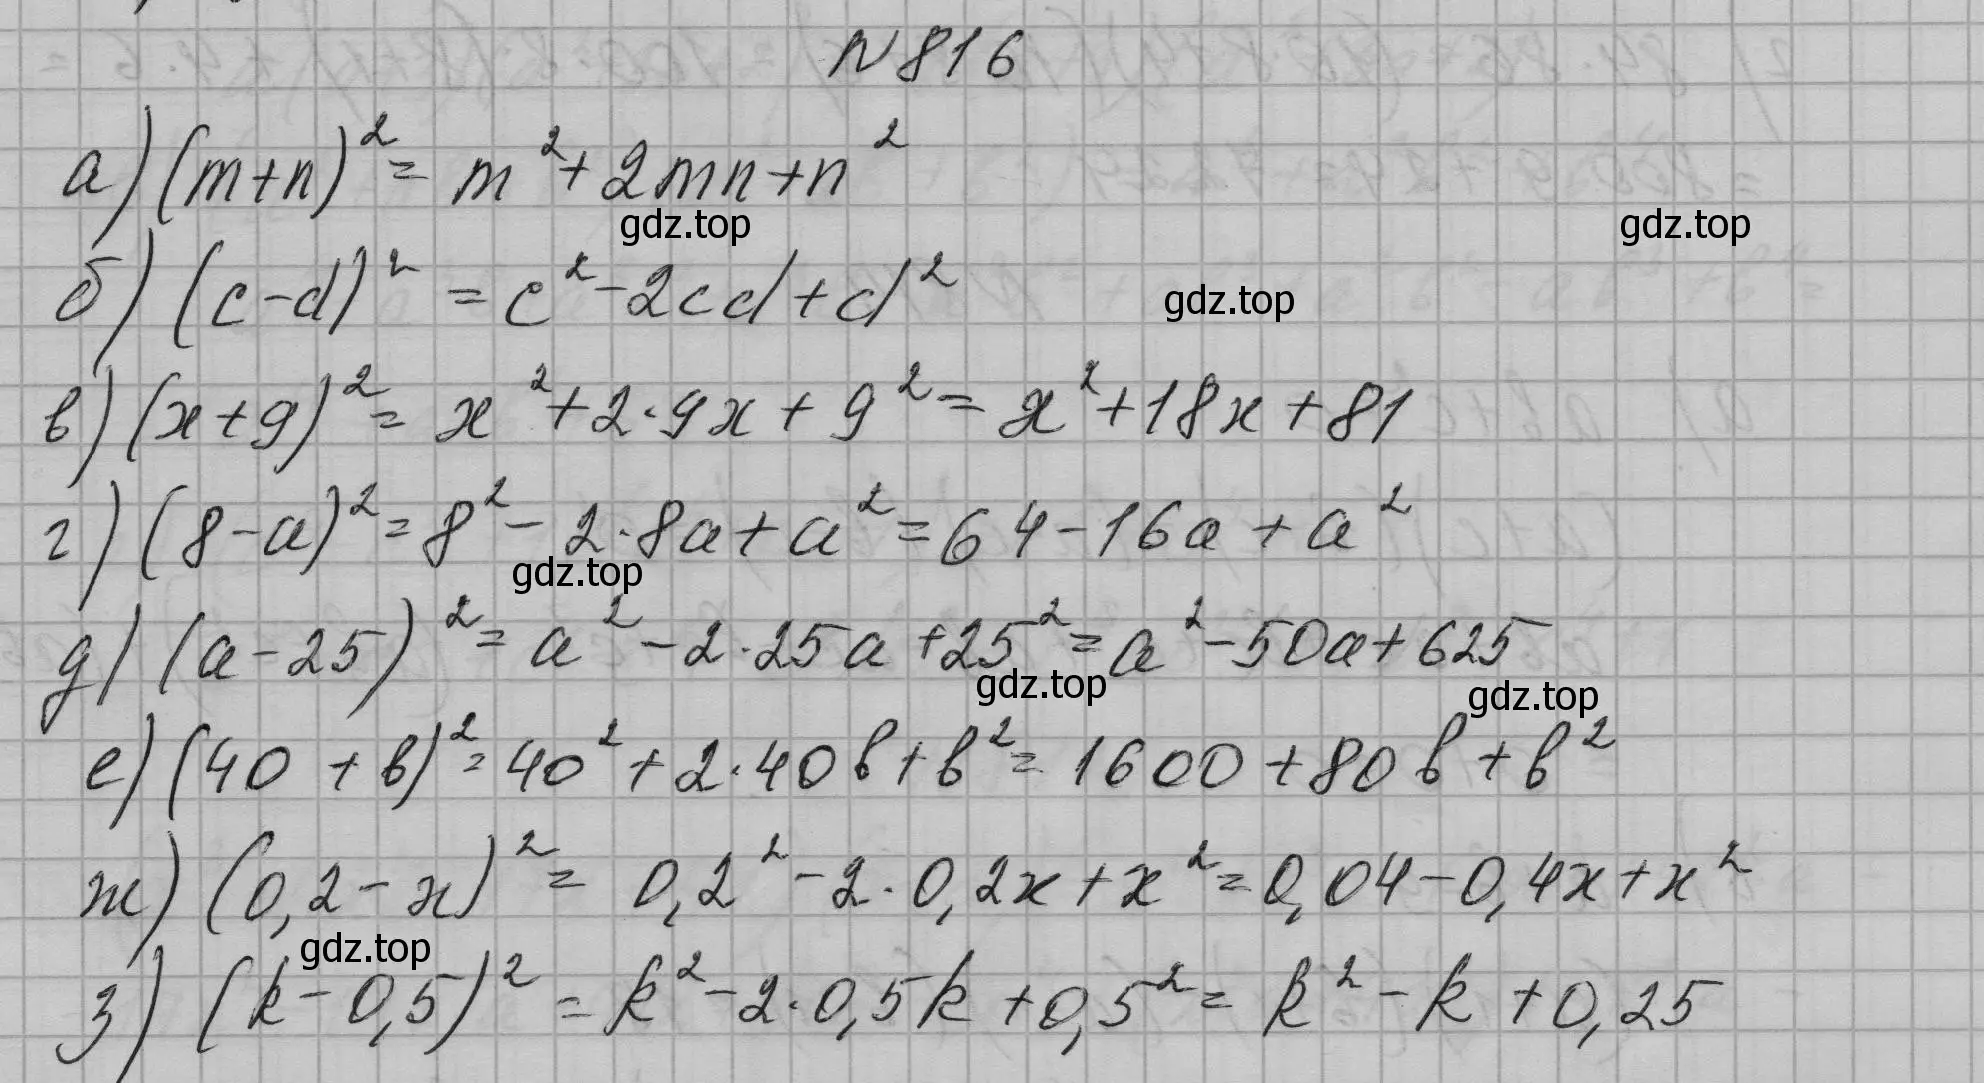 N 816
а) (m+n)² = m² + 2mn + n²
gdz.top
gdz.top
б) (c-d)² = c² - 2cd + d²
gdz.top
в) (x+9)² = x² + 2·9x + 9² = x² + 18x + 81
г) (8-a)² = 8² - 2·8a + a² = 64 - 16a + a²
gdz.top
д) (a-25)² = a² - 2·25a + 25² = a² - 50a + 625
gdz.top
gdz.top
е) (40+b)² = 40² + 2·40b + b² = 1600 + 80b + b²
ж) (0,2-x)² = 0,2² - 2·0,2x + x² = 0,04 - 0,4x + x²
gdz.top
з) (k-0,5)² = k² - 2·0,5k + 0,5² = k² - k + 0,25